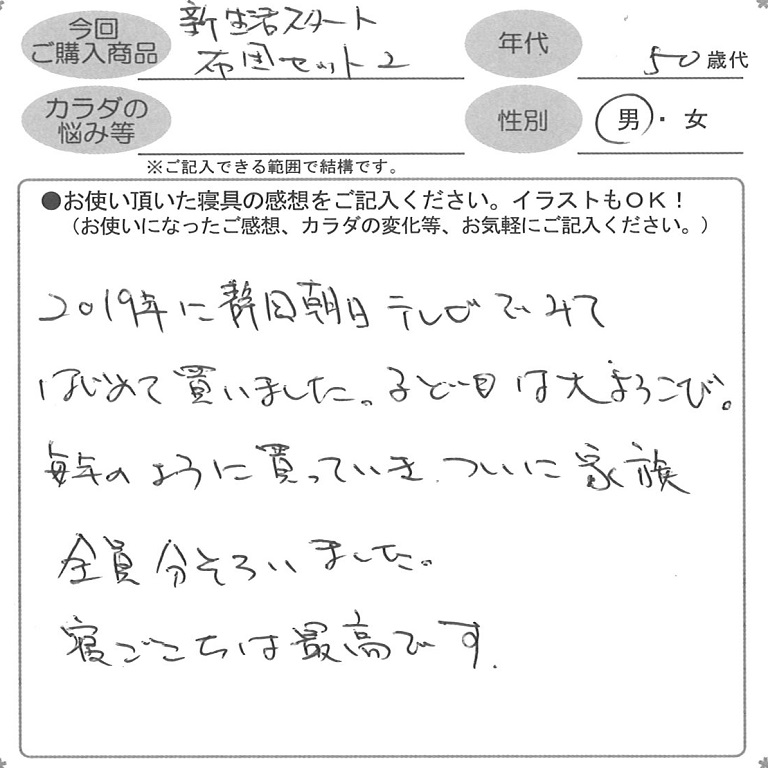 今回
ご購入商品
新生活スタート
布団セット2
年代
50歳代
カラダの
悩み等
性別
男・女
※ご記入できる範囲で結構です。
●お使い頂いた寝具の感想をご記入ください。イラストもOK！
（お使いになったご感想、カラダの変化等、お気軽にご記入ください。）
2019年に静岡朝日テレビでみて
はじめて買いました。子ども達は大よろこび。
毎年のように買っていき、ついに家族
全員分そろいました。
寝ごこちは最高です.